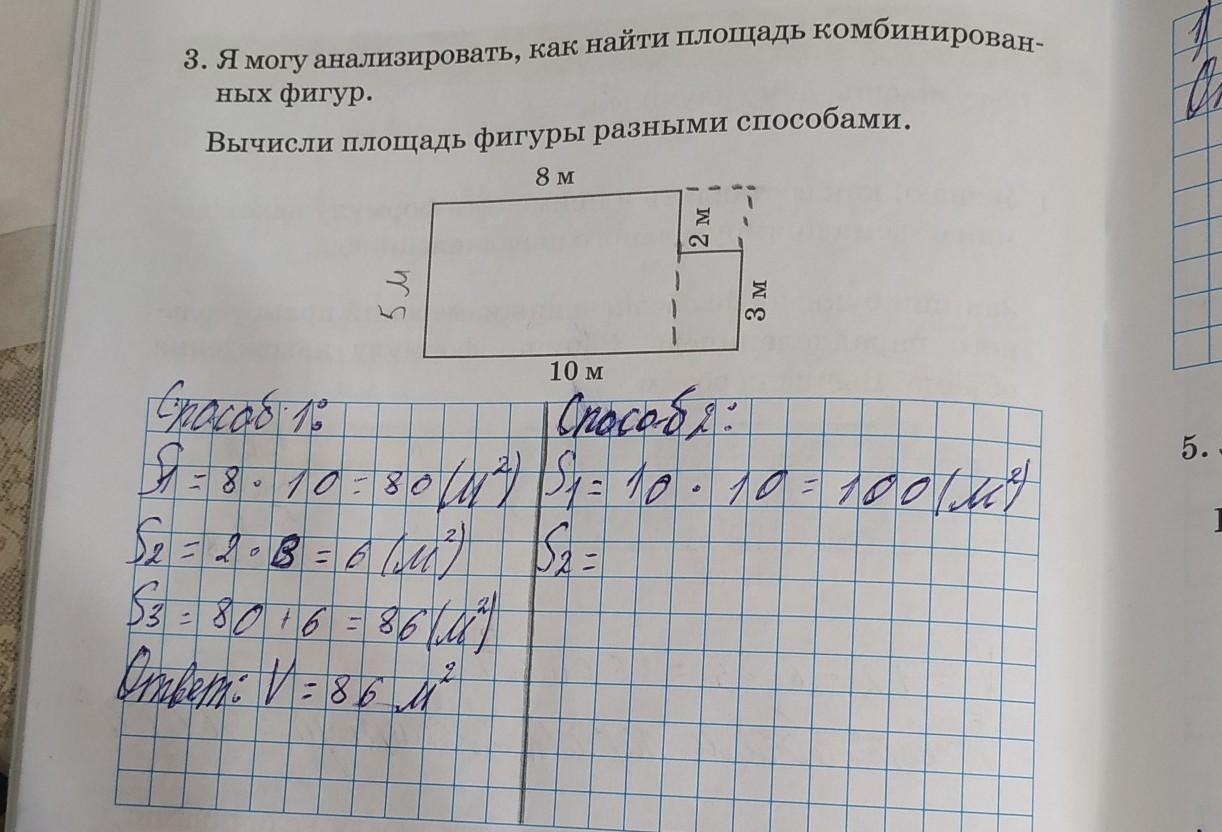 3. Я могу анализировать, как найти площадь комбинирован-
ных фигур.
Вычисли площадь фигуры разными способами.
8 м
2 м
5 м
3 м
10 м
Способ 1:
S1 = 8 · 10 = 80 (м²)
S2 = 2 · 3 = 6 (м²)
S3 = 80 + 6 = 86 (м²)
Ответ: V = 86 м²
Способ 2:
S1 = 10 · 10 = 100 (м²)
S2 =
1)
5.